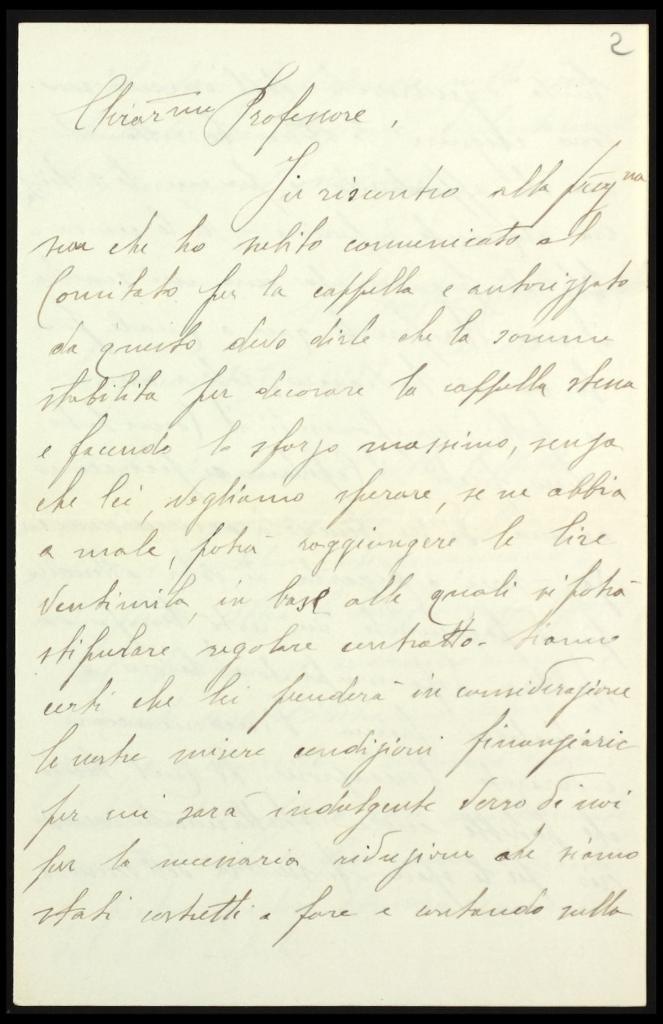 2
Chiar.mo Professore,
In riscontro alla preg.ma
sua che ho subito comunicato al
Comitato per la cappella e autorizzato
da questo devo dirle che la somma
stabilita per decorare la cappella stessa
e facendo lo sforzo massimo, senza
che lei, vogliamo sperare, se ne abbia
a male, potrà raggiungere le lire
ventimila, in base alle quali si potrà
stipulare regolare contratto. Siamo
certi che lei prenderà in considerazione
le nostre misere condizioni finanziarie
per cui sarà indulgente verso di noi
per la necessaria riduzione che siamo
stati costretti a fare e contando sulla